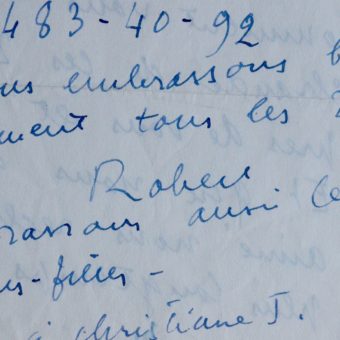 483-40-92
us embrassons b
ment tous les
Robert
rassons aussi les
s-filles -
christiane J.